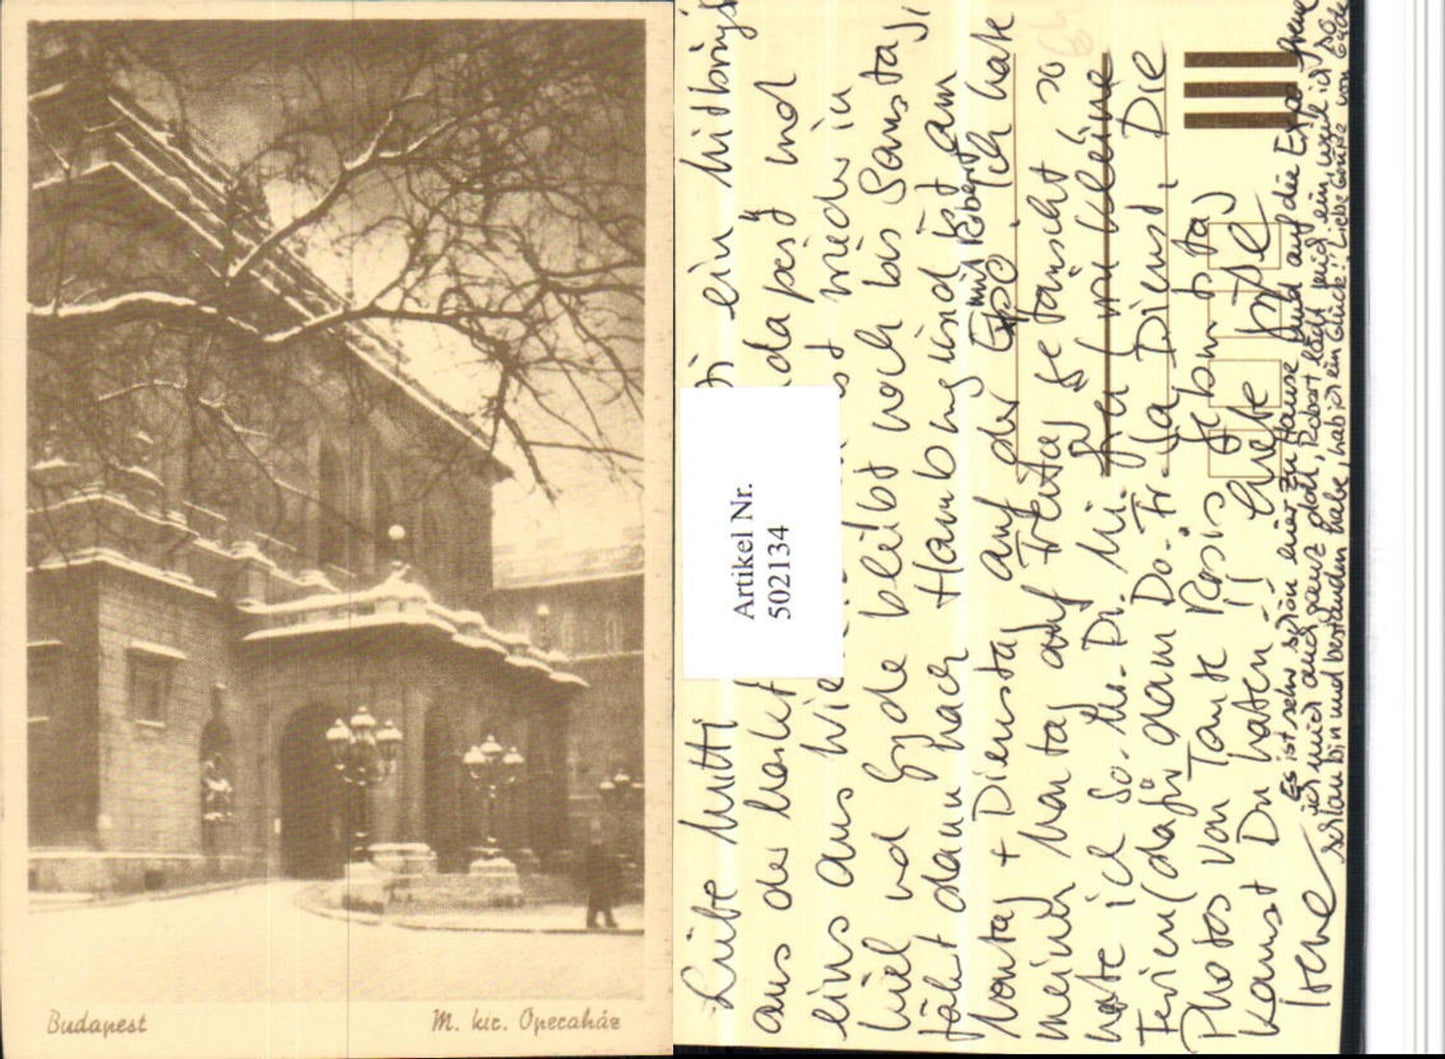 Budapest
M. kir. Operaház
Artikel Nr.
502134
Liebe Mutti ein mitbringsl
aus der Markt dapest und
eins aus Wie wieder in
Kiel und Gyde bleibt noch bis Samstag
fährt dann nach Hamburg und ist am
Montag + Dienstag auf der Expo mit Robert, Ich hate
meinen Montag auf Freitag getauscht so
hate ich So. Mo. Di. Mi. frei (wie kleine
Ferien) dafür dann Do. Fr. Sa Dienst, Die
Photos von Tante Rosis Geburtstag
kanst Du haten!! Liebe Grüße
Irene
Es ist sehr schön hier zu Hause und auf die Expo freue
ich mich auch ganz doll, Robert lädt mich ein, weil ich so
schlau bin und bestanden habe, hab ich ein Glück! Liebe Grüße von Gyde